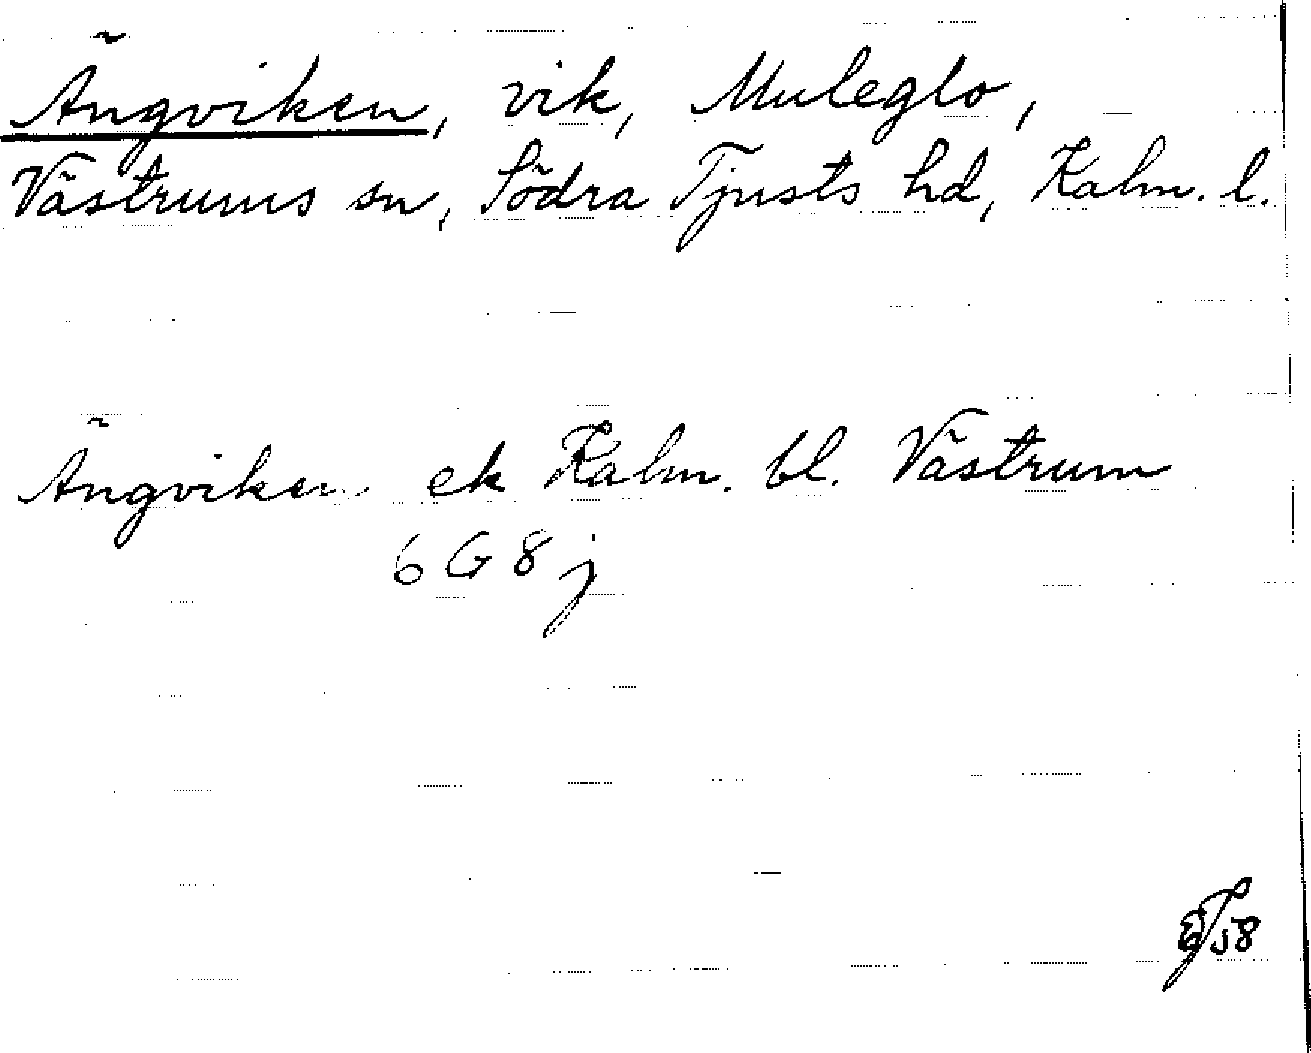 Ängviken, vik, Muleglo,
Västrums sn, Södra Tjusts hd, Kalm. l.
Ängviken ek Kalm. bl. Västrum
6 G 8 j